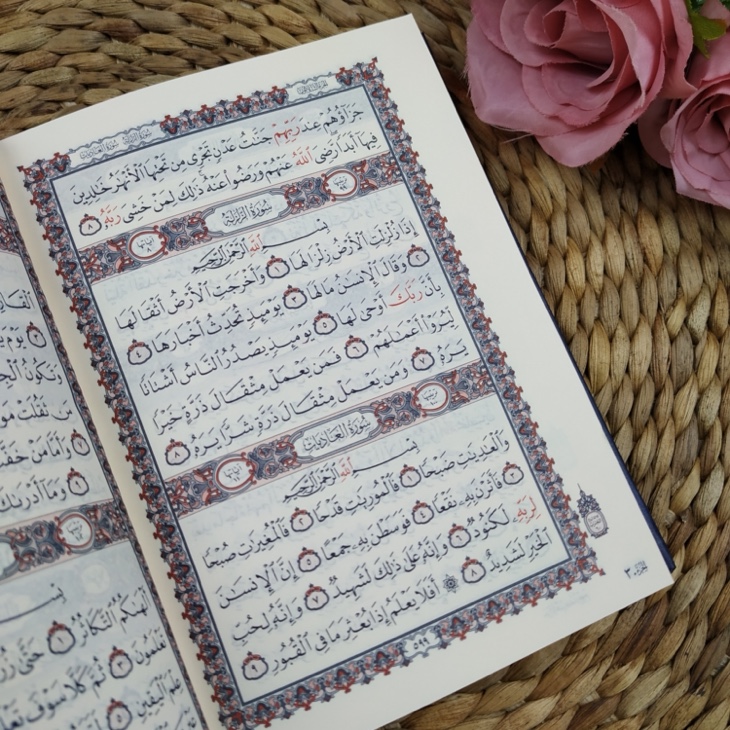 جَزَآؤُهُمْ عِندَ رَبِّهِمْ جَنَّٰتُ عَدْنٍ تَجْرِى مِن تَحْتِهَا ٱلْأَنْهَٰرُ خَٰلِدِينَ
فِيهَآ أَبَدًا رَّضِىَ ٱللَّهُ عَنْهُمْ وَرَضُوا۟ عَنْهُ ذَٰلِكَ لِمَنْ خَشِىَ رَبَّهُۥ ٨
سُورَةُ الزَّلْزَلَةِ
بِسْمِ ٱللَّهِ ٱلرَّحْمَٰنِ ٱلرَّحِيمِ
إِذَا زُلْزِلَتِ ٱلْأَرْضُ زِلْزَالَهَا ١ وَأَخْرَجَتِ ٱلْأَرْضُ أَثْقَالَهَا
٢ وَقَالَ ٱلْإِنسَٰنُ مَا لَهَا ٣ يَوْمَئِذٍ تُحَدِّثُ أَخْبَارَهَا ٤
بِأَنَّ رَبَّكَ أَوْحَىٰ لَهَا ٥ يَوْمَئِذٍ يَصْدُرُ ٱلنَّاسُ أَشْتَاتًا
لِّيُرَوْا۟ أَعْمَٰلَهُمْ ٦ فَمَن يَعْمَلْ مِثْقَالَ ذَرَّةٍ خَيْرًا
يَرَهُۥ ٧ وَمَن يَعْمَلْ مِثْقَالَ ذَرَّةٍ شَرًّا يَرَهُۥ ٨
سُورَةُ العَادِيَاتِ
بِسْمِ ٱللَّهِ ٱلرَّحْمَٰنِ ٱلرَّحِيمِ
وَٱلْعَٰدِيَٰتِ ضَبْحًا ١ فَٱلْمُورِيَٰتِ قَدْحًا ٢ فَٱلْمُغِيرَٰتِ صُبْحًا
٣ فَأَثَرْنَ بِهِۦ نَقْعًا ٤ فَوَسَطْنَ بِهِۦ جَمْعًا ٥ إِنَّ ٱلْإِنسَٰنَ
لِرَبِّهِۦ لَكَنُودٌ ٦ وَإِنَّهُۥ عَلَىٰ ذَٰلِكَ لَشَهِيدٌ ٧ وَإِنَّهُۥ لِحُبِّ
ٱلْخَيْرِ لَشَدِيدٌ ٨ ۞ أَفَلَا يَعْلَمُ إِذَا بُعْثِرَ مَا فِى ٱلْقُبُورِ ٩
٥٩٩
يَوْمَ
وَتَكُونُ
مَن ثَقُلَتْ
وَأَمَّا مَنْ
٩ وَمَآ أَدْرَىٰكَ
أَلْهَىٰكُمُ ٱلتَّكَاثُرُ ١ حَتَّىٰ
تَعْلَمُونَ ٣ ثُمَّ كَلَّا سَوْفَ
عِلْمَ ٱلْيَقِينِ ٥